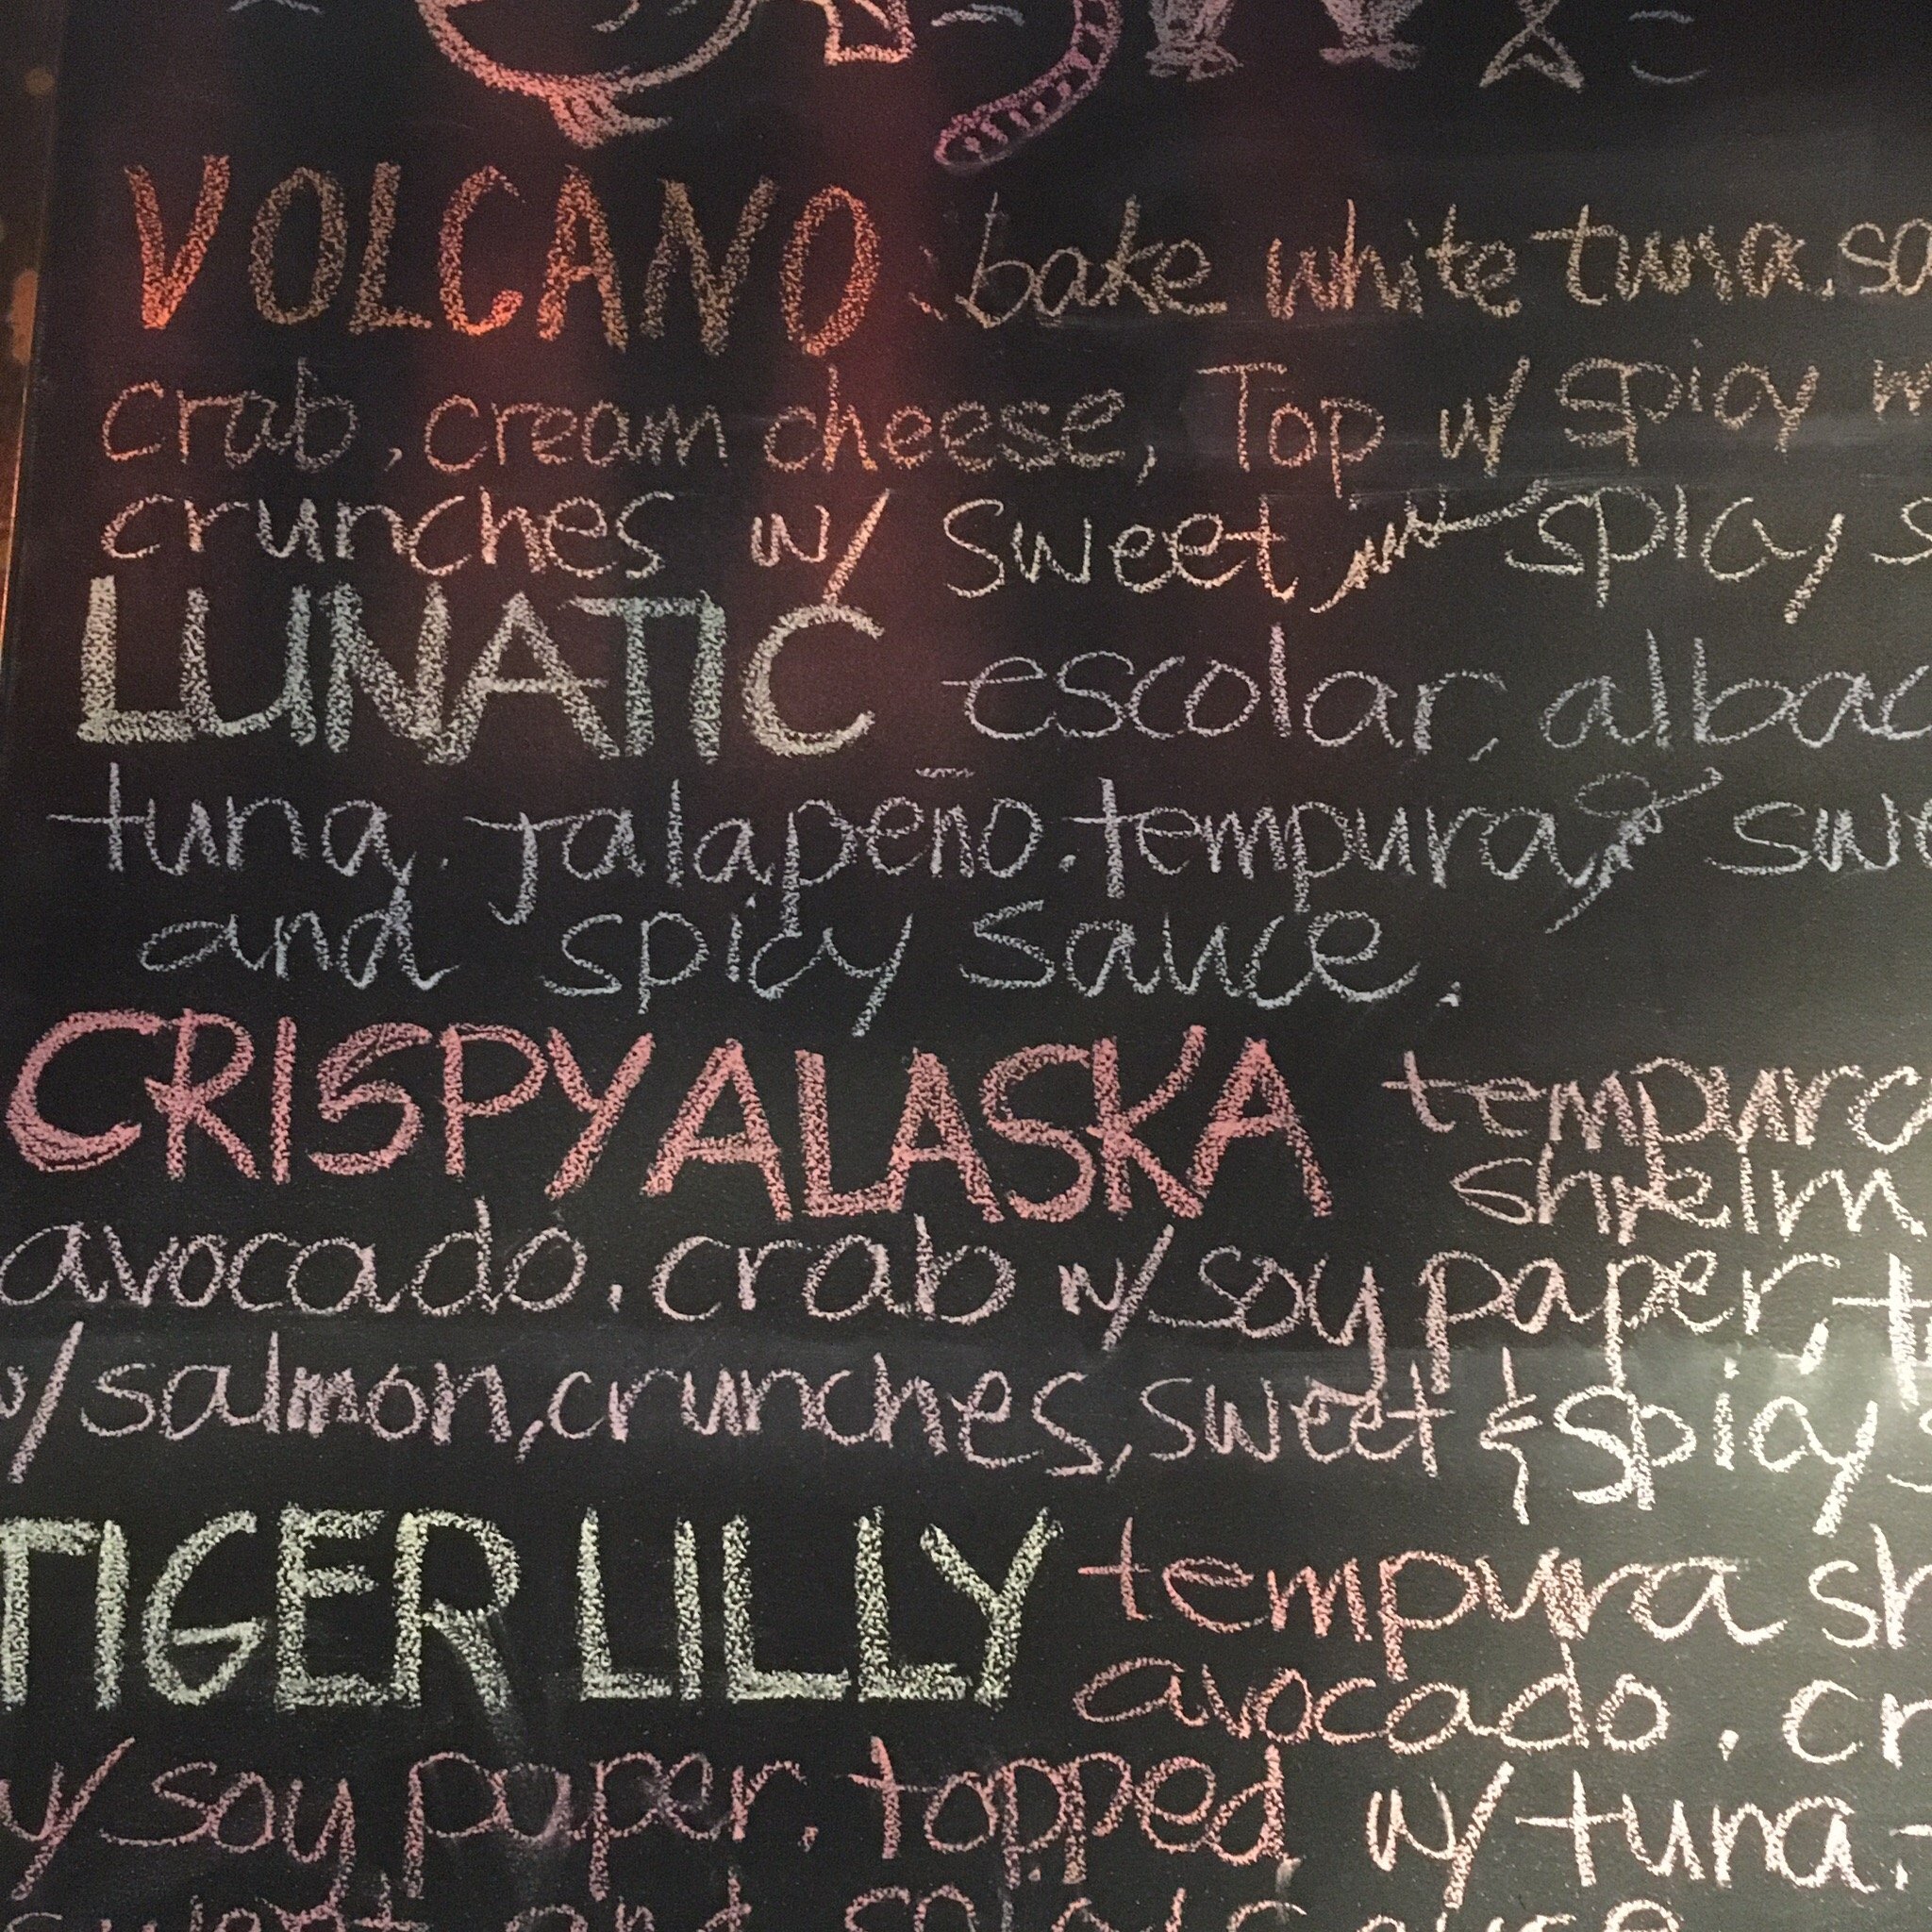 VOLCANO. bake white tuna. sa
crab, cream cheese, Top w/ spicy m
crunches w/ sweet, spicy s
LUNATIC escolar, albac
tuna. Jalapeño. tempura, swe
and spicy sauce.
CRISPY ALASKA tempura
shreim
avocado. crab w/ soy paper, t
w/ salmon, crunches, sweet & spicy s
TIGER LILLY tempura sh
avocado. cr
w/ soy paper, topped w/ tuna.
sweet and spicy sauce